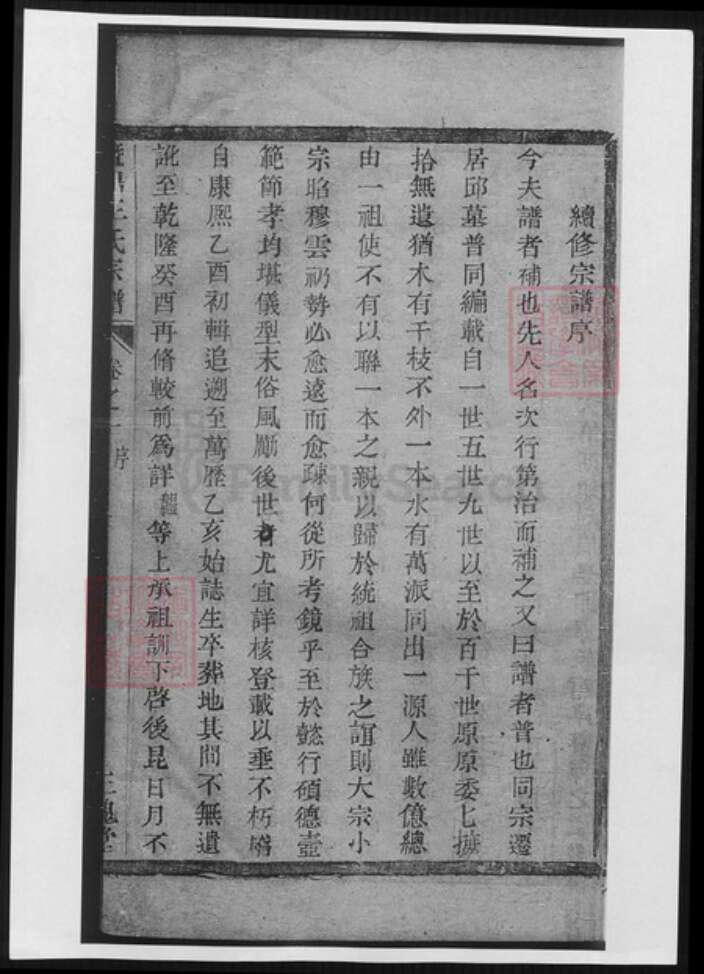 續修宗譜序
今夫譜者補也先人名次行第治而補之又曰譜者普也同宗遷
居邱墓普同編載自一世五世九世以至於百千世原原委七摭
拾無遺猶木有千枝不外一本水有萬派同出一源人雖數億總
由一祖使不有以聯一本之親以歸於統祖合族之誼則大宗小
宗昭穆雲礽勢必愈遠而愈疎何從所考鏡乎至於懿行碩德壼
範節孝均堪儀型末俗風勵後世者尤宜詳核登載以垂不朽
自康熈乙酉初輯追遡至萬歷乙亥始誌生卒葬地其間不無遺
訛至乾隆癸酉再脩較前爲詳等上承祖訓下啓後昆日月不
王氏宗譜
卷之一
序
三槐堂
FamilySearch